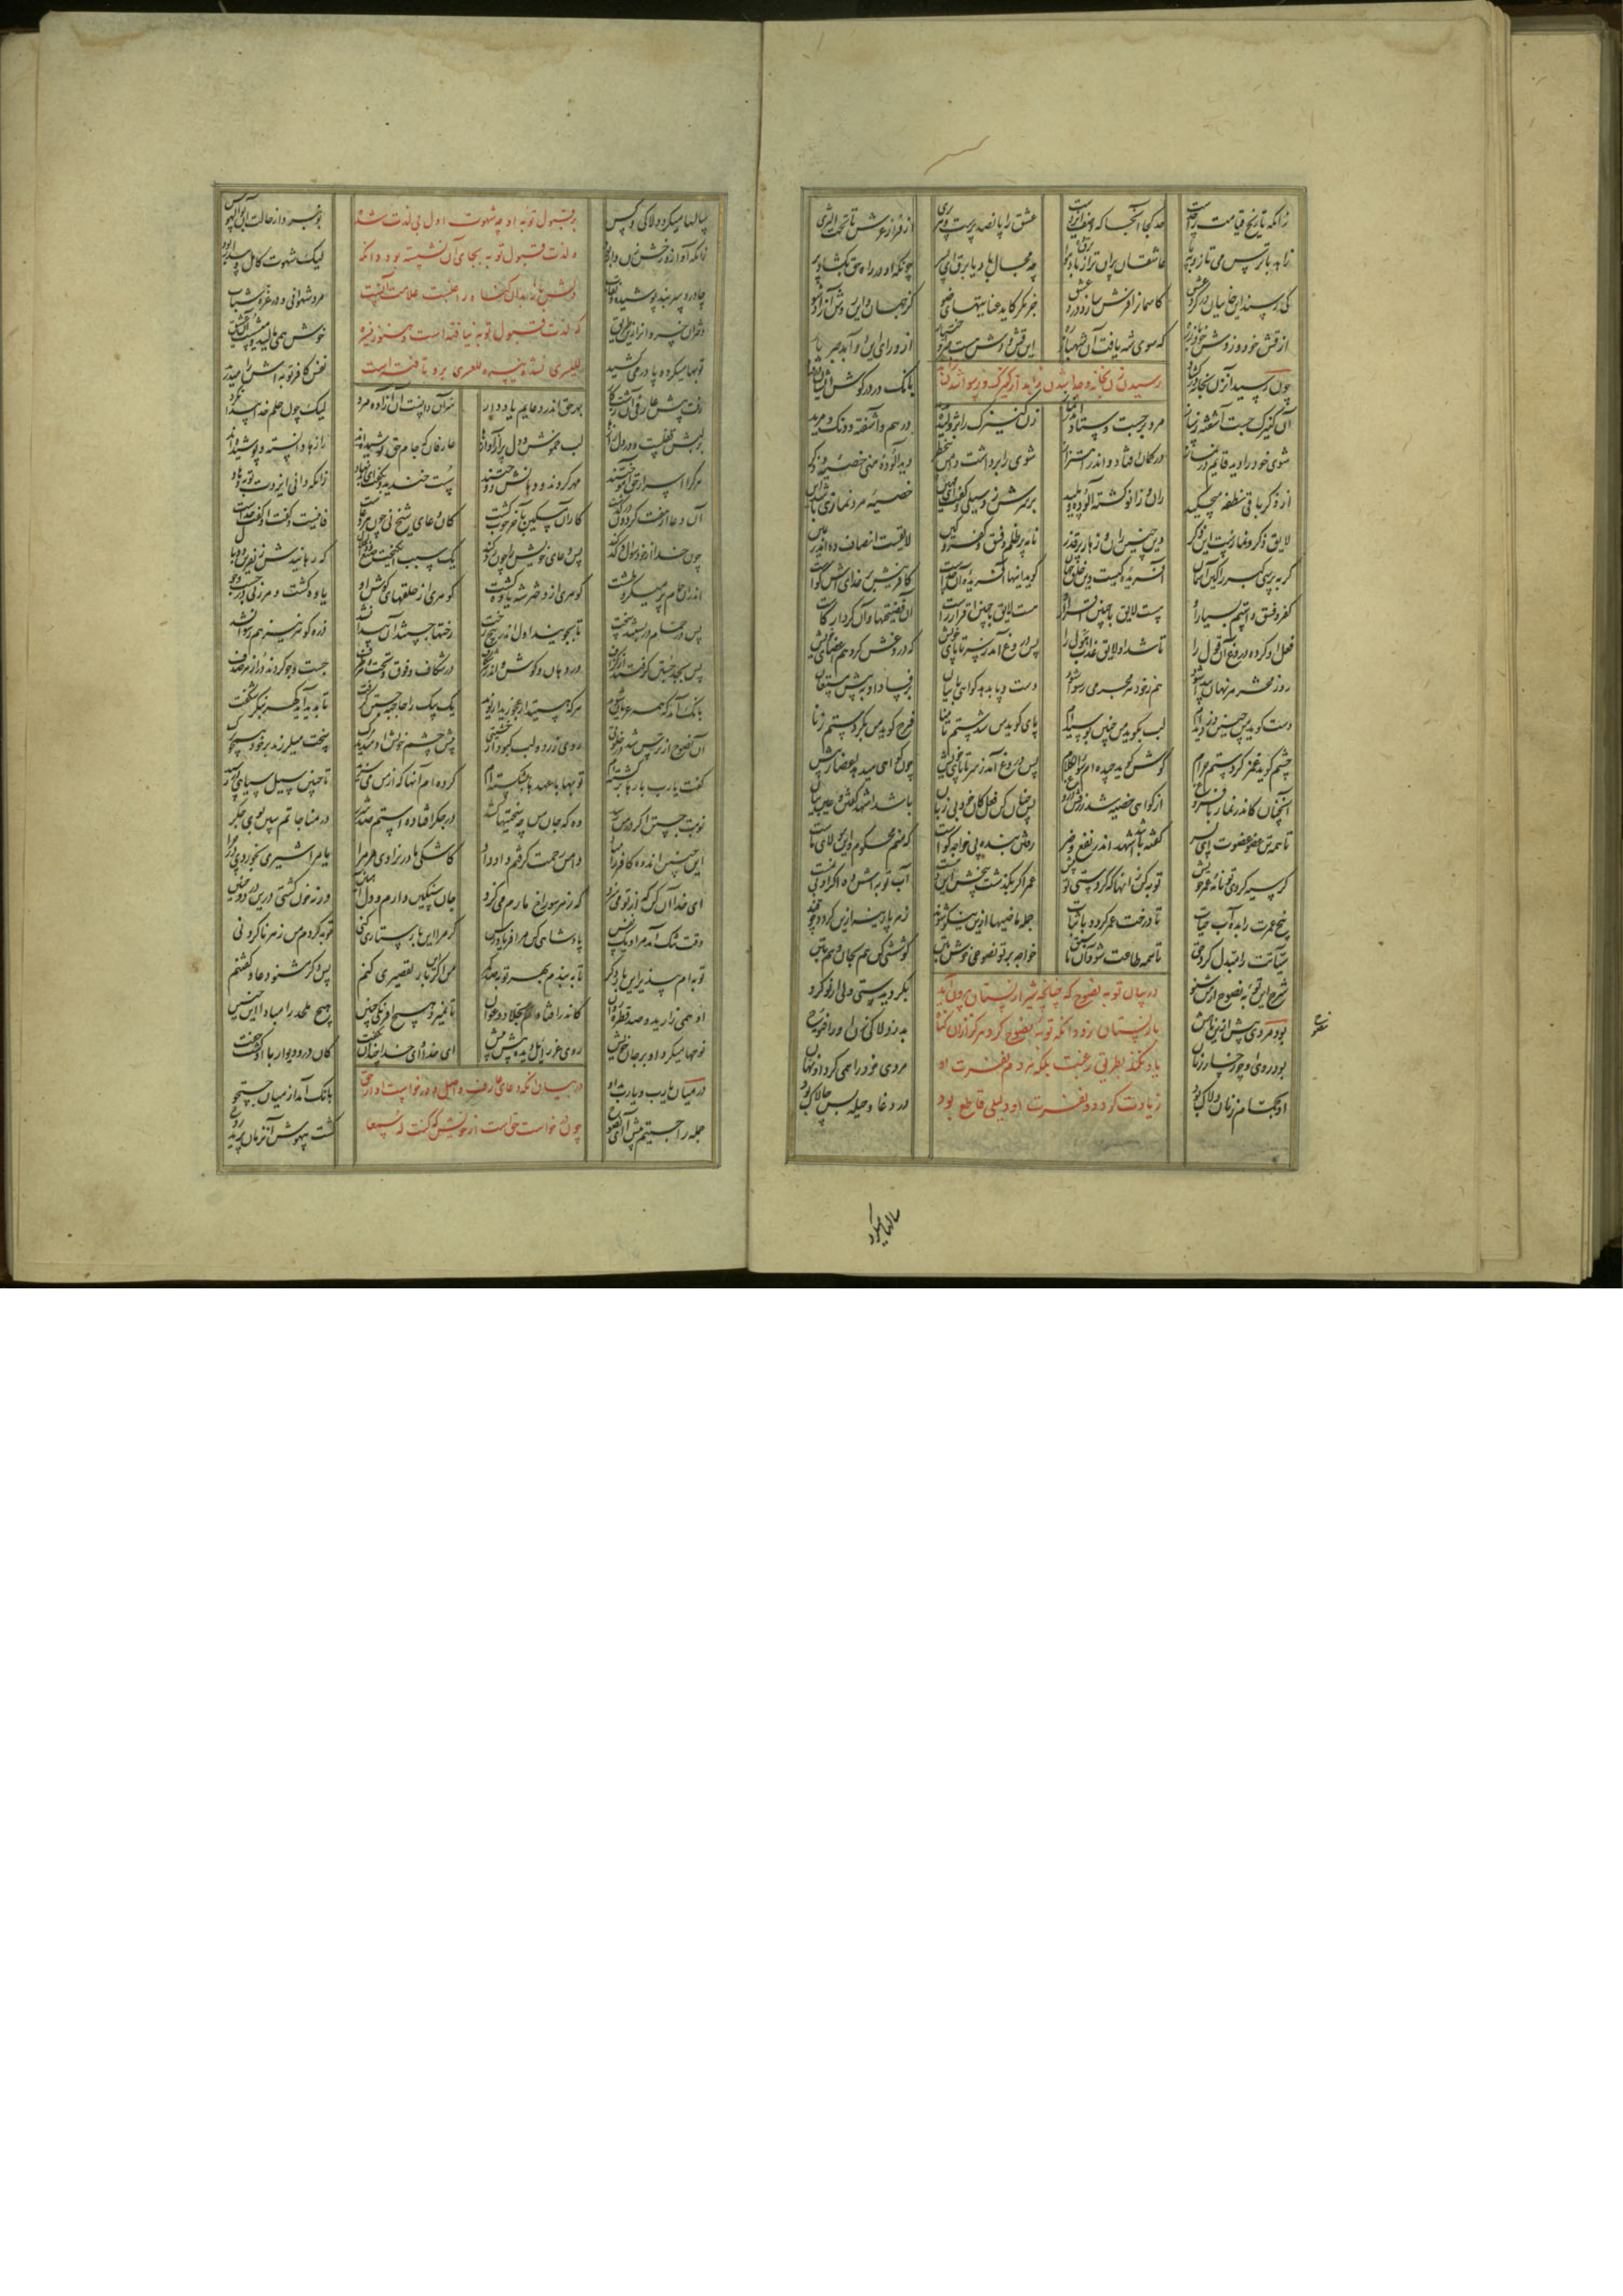 زانکه تاریخ قیامت را حدست حد کجا آنجا که وصف ایزدست عشق را پانصد پرست و هر پری از فراز عرش تا تحت الثری
زاهد با ترس می تازد بپا عاشقان پران تر از باد و هوا چه مجال باد یا برق ای پسر چونکه او در راه حق بگشاد پر
کی رسند این خایفان در گرد عشق کاسمان را فرش سازد درد عشق جز مگر کاید عنایتهای ضو کز جهان و این روش آزاد شو
از قش خود وز دش خود باز ره که سوی شه یافت آن شهباز ره این قش و دش هست جبر و اختیار از ورای این دو آمد جذب یار
رسیدن زن بخانه و جدا شدن زاهد از کنیزک و رسوا شدن
چون رسید آن زن بخانه در کشاد بانک در در کوش ایشان درفتاد
آن کنیزک جست آشفته ز ساز مرد برجست و ستاد اندر نماز زن کنیزک را پژولیده بدید درهم و آشفته و دنک و مرید
شوی خود را دید قایم در نماز در کمان افتاد و اندر اهتزاز شوی را برداشت دامن بی خطر دید آلوده منی خصیه و ذکر
از ذکر باقی نطفه میچکید ران و زانو کشته آلوده و پلید بر سرش زد سیلی و کفت ای مهین خصیه مرد نمازی باشد این
لایق ذکر و نمازست این ذکر وین چنین ران و زهار پر قذر نامه پر ظلم و فسق و کفر و کین لایقست انصاف ده اندر یمین
کر بپرسی کبر را کین آسمان آفریده کیست وین خلق جهان کوید اینها آفریده آن خداست کافرینش بر خدای اش کواست
کفر و فسق و استم بسیار او هست لایق با چنین اقرار او هست لایق با چنین اقرار راست آن فضیحتها و آن کردار کاست
فعل او کرده دروغ آن قول را تا شد او لایق عذاب هول را پس دروغ آمد ز سر تا پای خویش که دروغش کرد هم اعضای خویش
روز محشر هر نهان پیدا شود هم ز خود هر مجرمی رسوا شود دست و پا بدهد کواهی با بیان بر فساد او به پیش مستعان
دست کوید من چنین دزدیده ام لب بکوید من چنین بوسیده ام پای کوید من شدستم تا منا فرج کوید من بکردستم زنا
چشم کوید غمزه کردستم حرام کوش کوید چیده ام سوء الکلام پس دروغ آمد ز سر تا پای خویش چون کواهی میدهد اعضاش پیش
آنچنان کاندر نماز با فروغ از کواهی خصیه شد زرقش دروغ پس چنان کن فعل کان خود بی زبان باشد اشهد کفتن و عین بیان
تا همه تن عضو عضوت ای پسر کفته باشد اشهد اندر نفع و ضر رفتن بنده پی خواجه کواست که منم محکوم و این مولای ماست
کر سیه کردی تو نامه عمر خویش توبه کن زانها که کردستی تو پیش عمر اکر بکذشت بیخش این دمست آب توبه اش ده اکر او بی نمست
بیخ عمرت را بده آب حیات تا درخت عمر کردد با ثبات جمله ماضیها ازین نیکو شوند زهر پارینه ازین کردد چو قند
سیآتت را مبدل کرد حق تا همه طاعت شود آن ما سبق خواجه بر توبه نصوحی خوش بتن کوششی کن هم بجان و هم بتن
شرح این توبه نصوح از من شنو بکرویدستی ولی از نو کرو
در بیان توبه نصوح که چنانچه شیر از پستان بیرون آید
باز پستان نرود آنکه توبه نصوح کرد هرکز از آن کناه
یاد نکند بطریق رغبت بلکه هر دم نفرت او
زیادت کردد و نفرت او دلیلی قاطع بود
بود مردی پیش ازین نامش نصوح بد ز دلاکی زن او را فتوح
بود روی او چو رخسار زنان مردی خود را همی کرد او نهان
او بحمام زنان دلاک بود در دغا و حیله بس چالاک بود
سالها میکرد
سالها میکرد دلاکی و کس بو نبرد از حالت آن بوالهوس
بر قبول توبه او چه شهوت اول بی لذت شد
زانکه آواز و رخش زن وار بود لیک شهوت کامل و بیدار بود
و لذت قبول توبه بجای آن نشسته بود و آنکه
چادر و سربند پوشیده و نقاب مرد شهوانی و در غره شباب
دلش باز بدان کناه راغبست علامت آنست
دختران خسروان را زین طریق خوش همی مالید و میشست آن عشیق
که لذت قبول توبه نیافته است و هنوز
توبها میکرد و پا در می کشید نفس کافر توبه اش را میدرید
للیسری نشده للعسری برو باقیست
رفت پیش عارفی آن زشت کار کفت ما را در دعایی یاد دار
سر او دانست آن آزاده مرد لیک چون حلم خدا پیدا نکرد
بر لبش قفلست و در دل رازها لب خموش و دل پر از آوازها عارفان که جام حق نوشیده اند رازها دانسته و پوشیده اند
هر کرا اسرار حق آموختند مهر کردند و دهانش دوختند سست خندید و بکفت ای بدنهاد زانکه دانی ایزدت توبه دهاد
آن دعا از هفت کردون درکذشت کار آن مسکین بآخر خوب کشت کان دعای شیخ نی چون هر دعاست فانیست و کفت او کفت خداست
چون خدا از خود سؤال و کد کند پس دعای خویش را چون رد کند یک سبب انکیخت صنع ذوالجلال که رهانیدش ز نفرین و وبال
اندر آن حمام پر میکرد طشت کوهری از دختر شه یاوه کشت کوهری از حلقهای کوش او یاوه کشت و هر زنی در جست و جو
پس در حمام را بستند سخت تا بجویند اول اندر بیخ رخت رختها جستند و آن پیدا نشد دزد کوهر نیز هم رسوا نشد
پس بجد جستن کرفتند از کزاف در دهان و کوش و اندر هر شکاف در شکاف و فوق و تحت و هر طرف جست و جو کردند در از هر صدف
بانک آمد که همه عریان شوید هر که هستید ار عجوز ار نوید یک بیک را حاجبه جستن کرفت تا پدید آید کهر بنکر شکفت
آن نصوح از ترس شد در خلوتی روی زرد و لب کبود از خشیتی پیش چشم خویش او میدید مرک سخت میلرزید بر خود همچو برک
کفت یارب بارها برکشته ام توبها با عهدها بشکسته ام کرده ام آنها که از من می سزید تا چنین سیل سیاهی در رسید
نوبت جستن اکر در من رسد وه که جان من چه سختیها کشد در جکر افتاده استم صد شرر در مناجاتم ببین بوی جکر
این چنین انده کافر را مباد دامن رحمت کرفتم داد داد کاشکی مادر نزادی مر مرا یا مرا شیری بخوردی در چرا
ای خدا آن کن که از تو می سزد که ز هر سوراخ مارم می کزد جان سنکین دارم و دل آهنین ورنه خون کشتی درین درد و حنین
وقت تنک آمد مرا و یک نفس پادشاهی کن مرا فریاد رس کر مرا این بار ستاری کنی توبه کردم من ز هر ناکردنی
توبه ام بپذیر این بار دکر تا ببندم بهر توبه صد کمر من اکر این بار تقصیری کنم پس دکر مشنو دعا و کفتنم
او همی زارید و صد قطره روان کاندر افتادم بجلاد و عوان تا نمیرد هیچ افرنکی چنین هیچ ملحد را مبادا این حنین
نوحها میکرد او بر جان خویش روی عزرائیل دیده پیش پیش ای خدا و ای خدا چندان بکفت کان در و دیوار با او کشت جفت
در بیان آنکه دعای عارف واصل و درخواست او از حق
در میان یارب و یارب بد او بانک آمد از میان جست و جو
چون درخواست حق است از خویشتن که کنت له سمعا
جمله را جستیم پیش آی ای نصوح کشت بیهوش آنزمان پرید روح